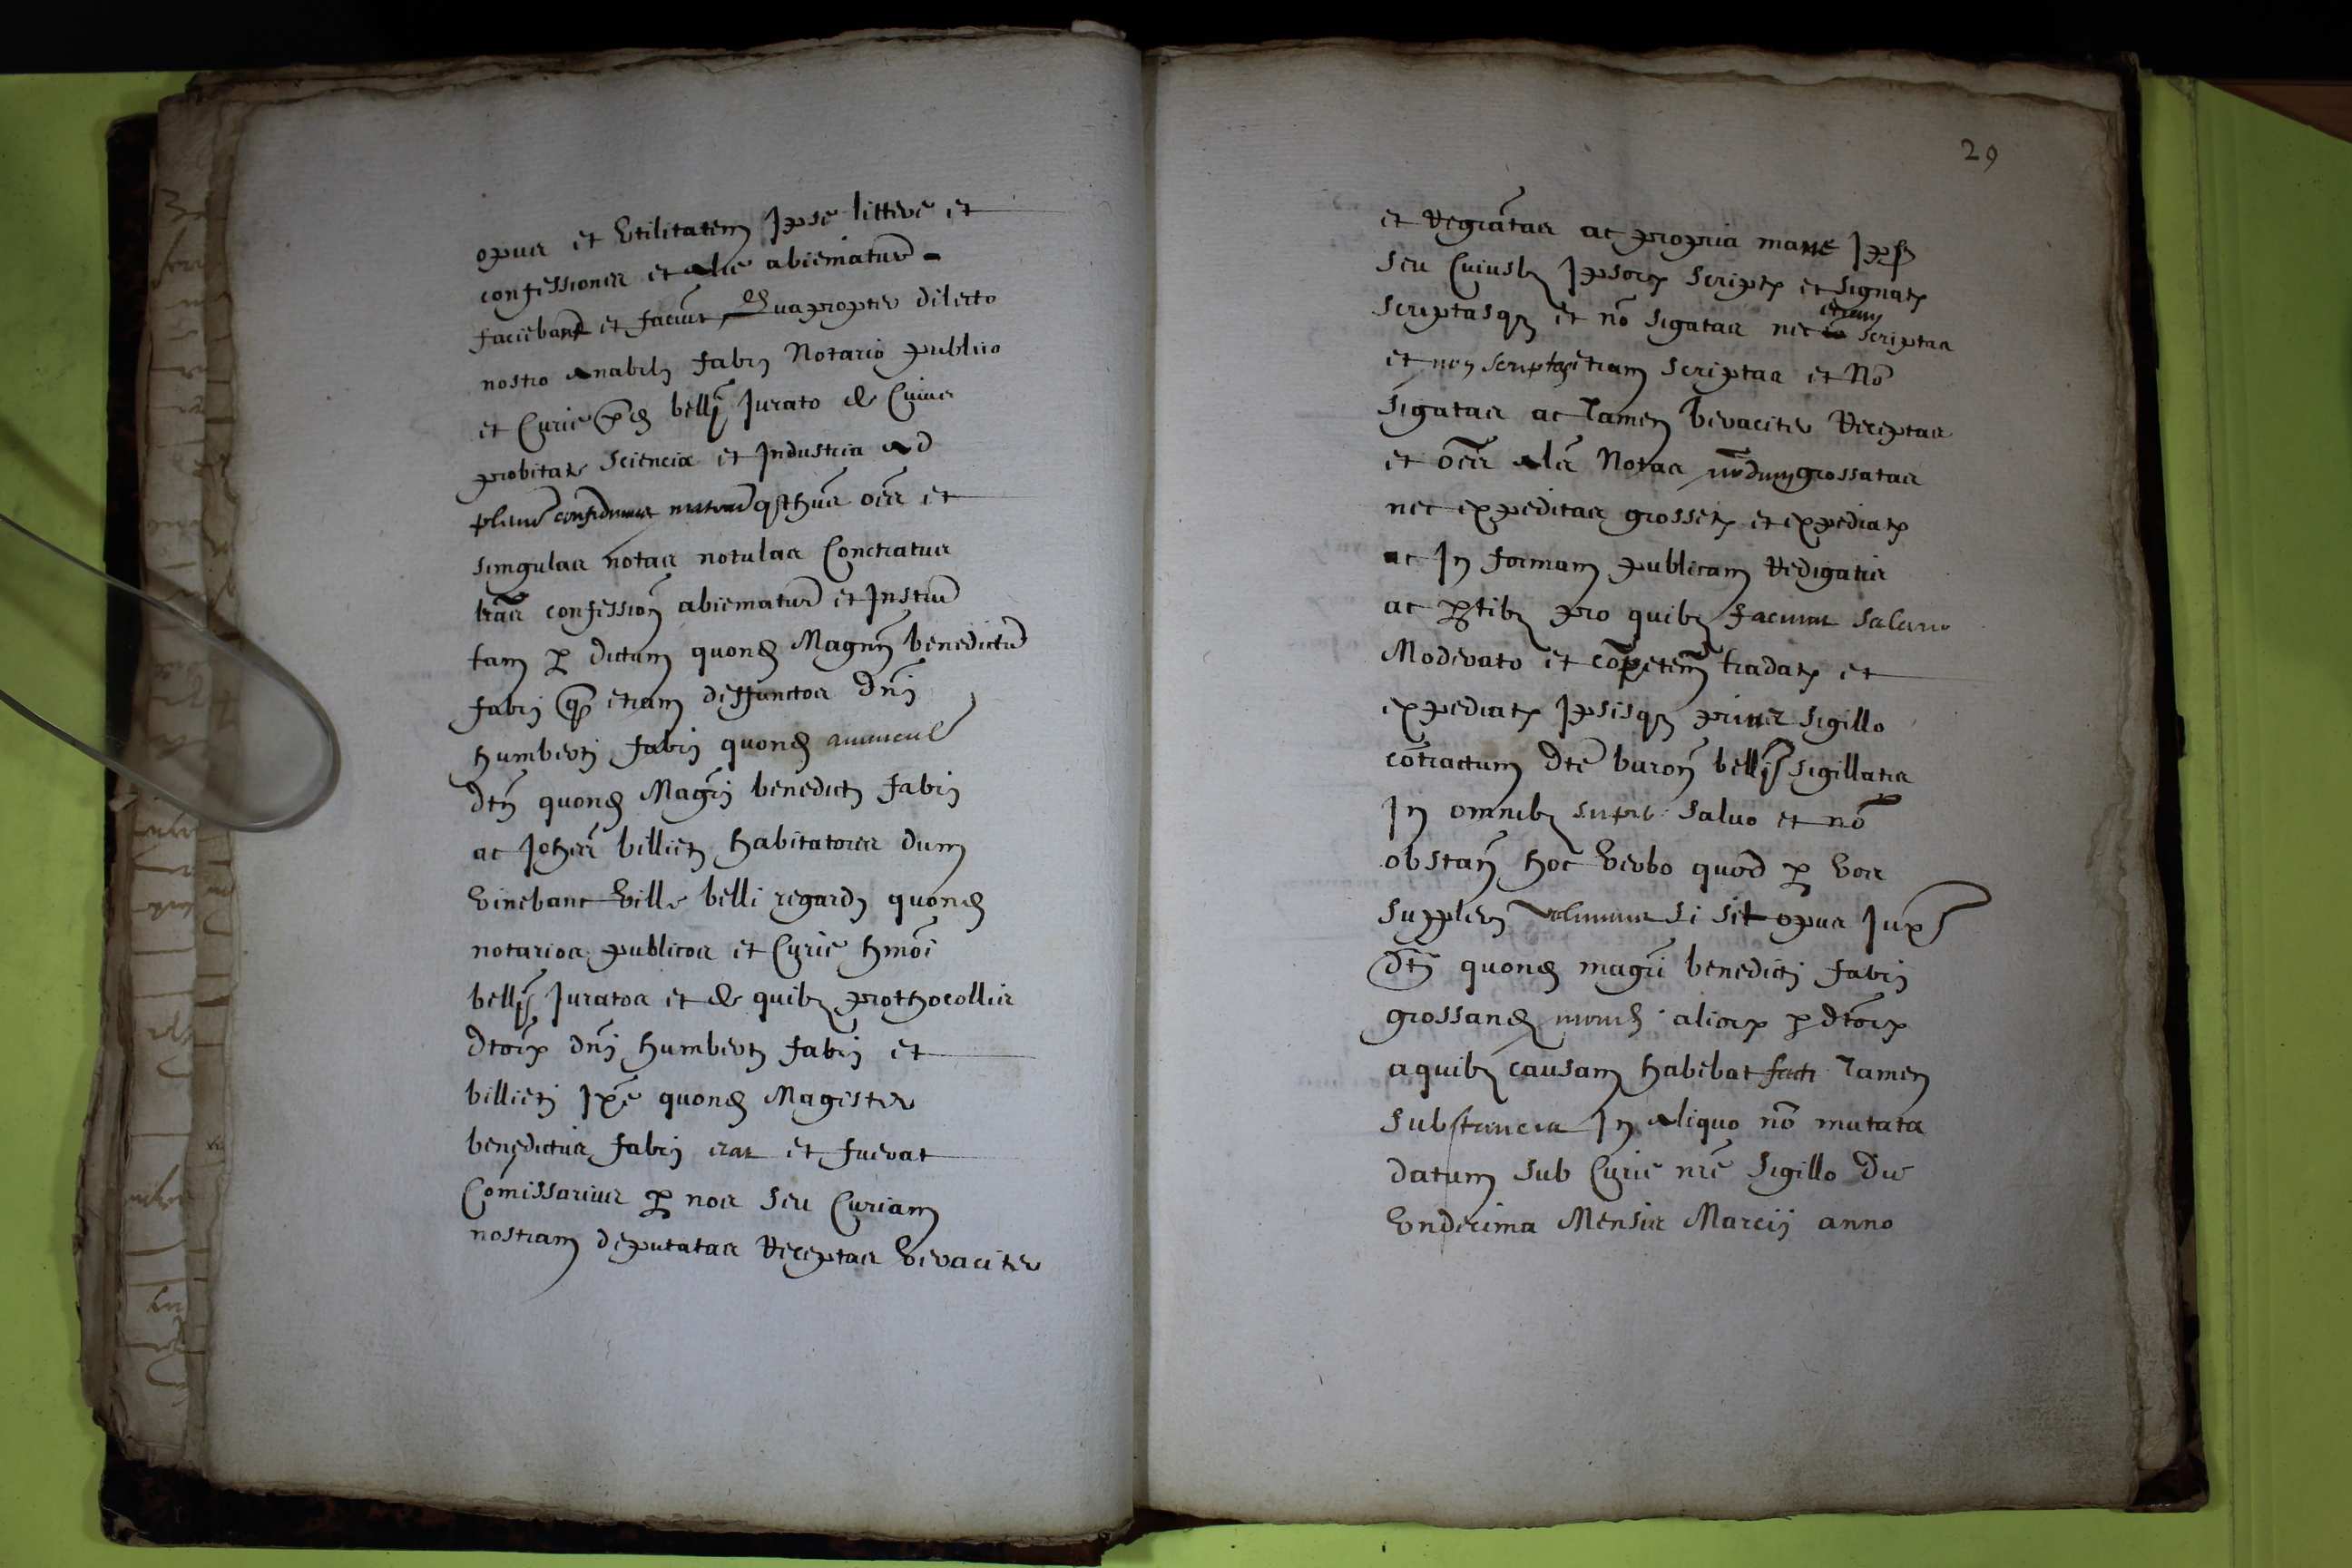 opus et Utilitatem Jpse littere et
confessiones et alie abiematur̃
faciebant et faciũt, Quapropter dilecto
nostro Anabli fabri Notario publico
et Curie p̃d bell Jurato de Cuius
probitate sciencia et Industria Ad
plenũ confidimus qthus oẽs et
singulas notas notulas Contratus
lrãs confession abiematur̃ et Instrũ
tam p dictum quond Magrm̃ benedictũ
fabri q̃ etiam deffunctos dnj̃
humberti fabri quond auuncul
dtj̃ quond Magrj̃ benedicti fabri
ac Joheñ billieti habitatores dum
Vivebant Ville belli regardi quond
notarios publicos et Curie hmõi
bell Juratos et de quib prothocollis
dtõrꝝ dnj̃ humberti fabri et
billieti Jpẽ quond Magister
benedictus fabri erat et fuerat
Comissarius p nos seu Curiam
nostram deputatas Receptas Veraciter
29
et Regratas ac propria mane Jps
seu Cuiusl Jpsorꝝ script et signat
etiam
scriptasq et nõ sigatas nec scriptas
et non scriptas etiam scriptas et Nõ
sigatas ac Tamen Veraciter Receptas
et oẽs alẽ Notas nõdum grossatas
nec expeditas grosset et expediat
ac In formam publicam Redigatis
ac ptib pro quib faciunt salario
Moderato et cõpetem tradat et
expediat Jpsisq prius sigillo
cõtractum dtẽ baroñ bell sigillatis
In omnib supr salvo et nõ
obstañ hoc Verbo quod p Vos
suppleri Volumus si sit opus Jux
dtj̃ quond magrj̃ benedicti fabri
grossand aliorꝝ p dtõrꝝ
aquib causam habebat facti Tamen
substancia In aliquo nõ mutata
datum sub Curie nrẽ sigillo Die
Undecima Mensis Marcij anno